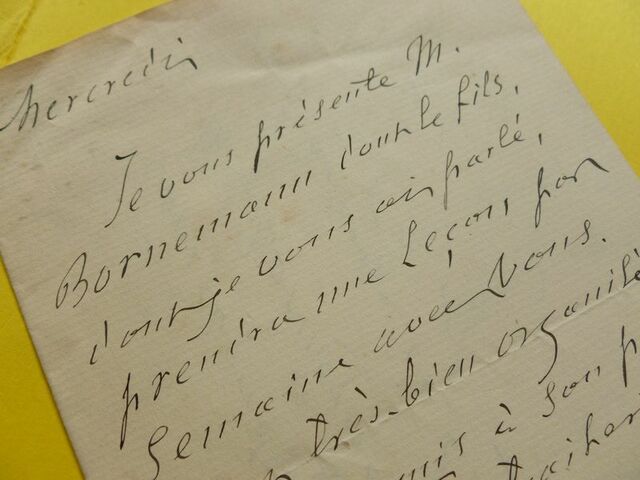 Mercredi
Je vous présente M.
Bornemann dont le fils,
dont je vous ai parlé,
prendra une Leçon par
Semaine avec Vous.
très bien organisé
mis à son